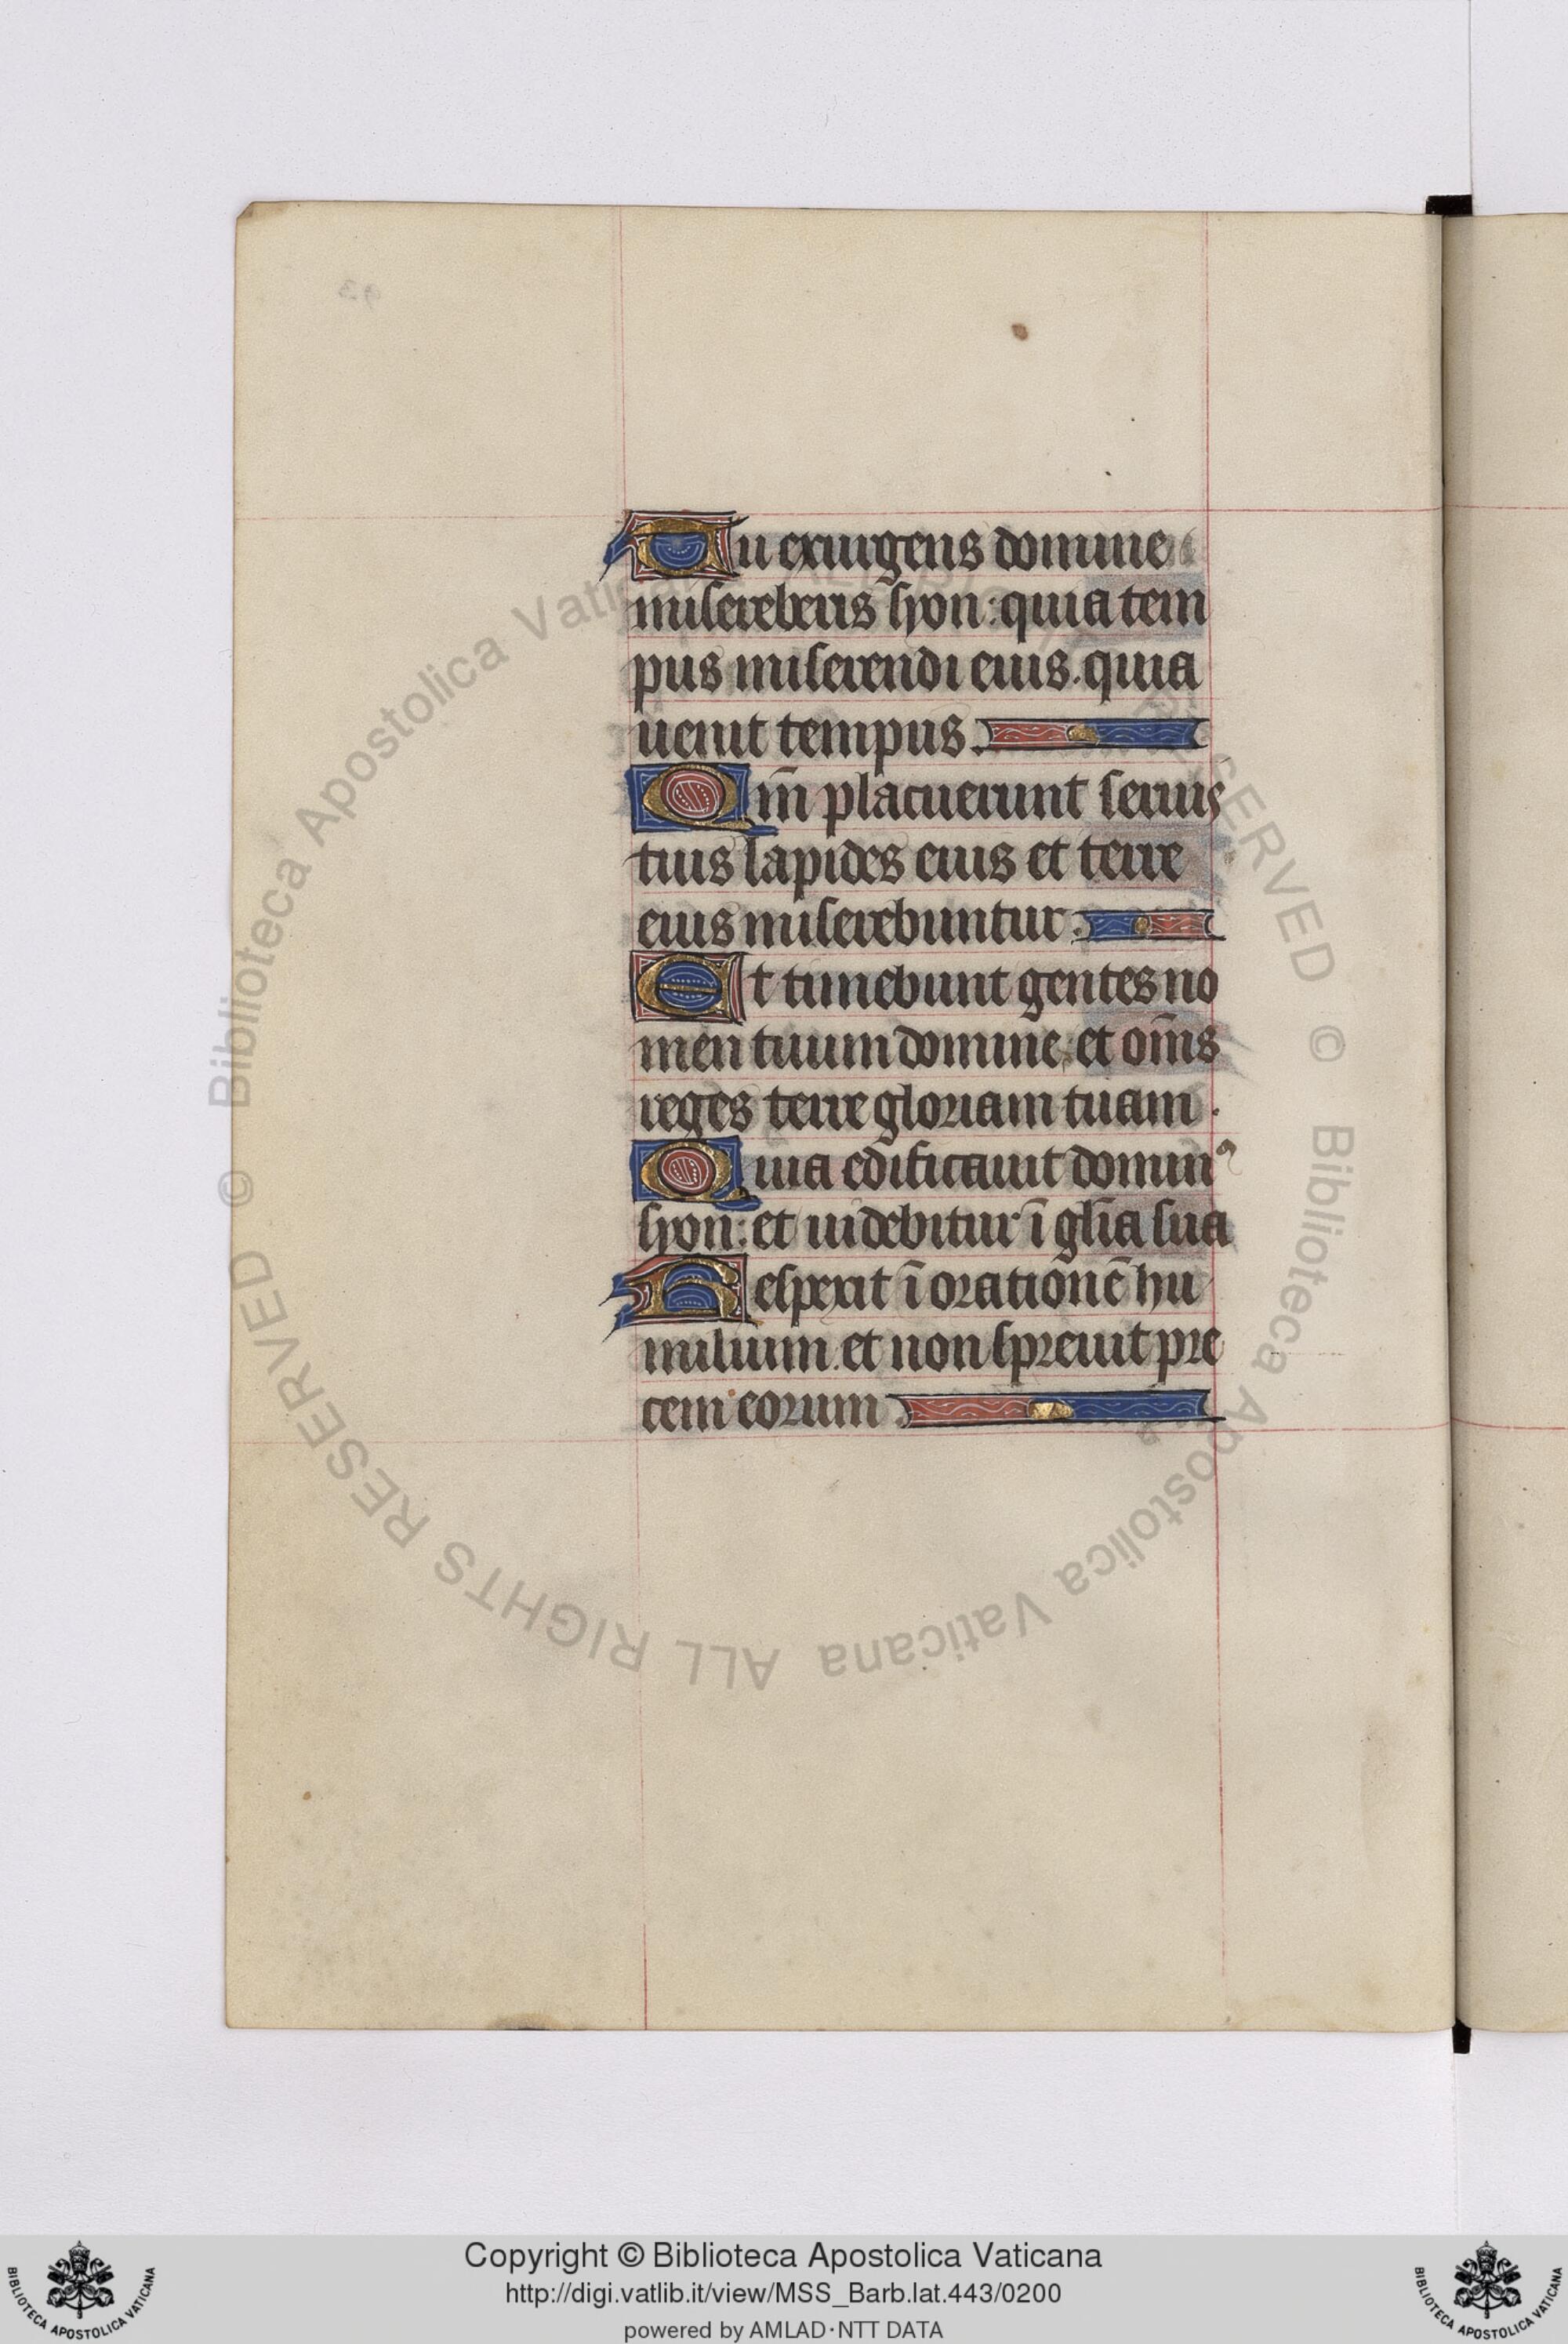 Tu exurgens domine
misereberis syon: quia tem
pus miserendi eius. quia
uenit tempus.
Qm̄ placuerunt seruis
tuis lapides eius et terre
eius miserebuntur.
Et timebunt gentes no
men tuum domine: et om̄s
reges terre gloriam tuam.
Quia edificauit dominꝰ
syon: et uidebitur ī gl̄ia sua
Respexit ī orationē hu
milium. et non spreuit pre
cem eorum.
93
© Biblioteca Apostolica Vaticana ALL RIGHTS RESERVED © Biblioteca Apostolica Vaticana ALL RIGHTS RESERVED
Copyright © Biblioteca Apostolica Vaticana
http://digi.vatlib.it/view/MSS_Barb.lat.443/0200
powered by AMLAD·NTT DATA
BIBLIOTECA APOSTOLICA VATICANA
BIBLIOTECA APOSTOLICA VATICANA